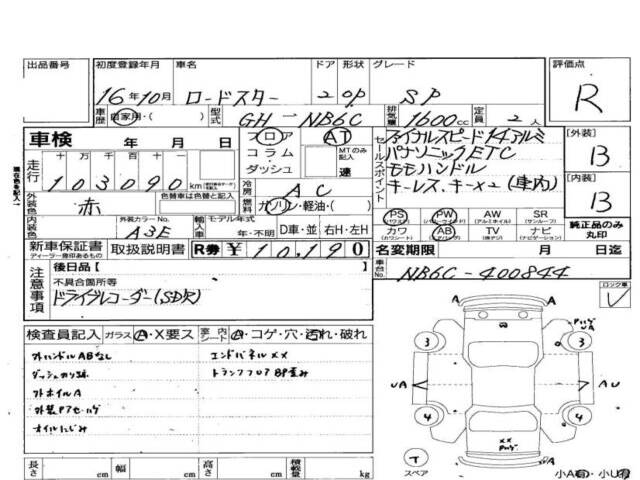 出品番号 初度登録年月 車名 ドア 形状 グレード 評価点
16年10月 ロードスター 2 OP SP R
車歴 自家用・( ) 型式 GH-NB6C 排気量 1600cc 定員 2人
車検 年 月 日 フロア AT
コラム MTのみ記入
ダッシュ 速
走行 十 万 千 百 十 一
103090km
セールスポイント
ファイナルスピード14アルミ
パナソニックETC
モモハンドル
キーレス、キー×2(車内)
[外装] B
[内装] B
外装色 赤 色替車は色替と記入 冷房 AC
燃料 ガソリン・軽油・( )
PS PW AW SR
(パワステ) (パワーウインドウ) (アルミホイル) (サンルーフ)
カワ AB TV ナビ
(カワシート) (エアバッグ) (後ギキ) (ナビゲーション)
純正品のみ丸印
内装色 外装カラーNo. A3E 輸入車 モデル年式 年・不明 D車・並 右H・左H
新車保証書 取扱説明書 R券 ¥10,190
ディーラー発印あるもの
名変期限 月 日迄
車台No. NB6C-400844
注意事項
後日品[ ]
不具合箇所等
ドライブレコーダー(SD欠)
ロック車 レ
検査員記入 ガラス A・X要ス 室内シート A・コゲ・穴・汚れ・破れ
外ハンドルABなし エンドパネルXX
トランクフロアBP歪み
外ホイルA
オイルにじみ
A A
3 3
UA AU
4 4
XX
T
スペア A A
小A有・小U有
長さ cm 幅 cm 高さ cm 積載量 kg